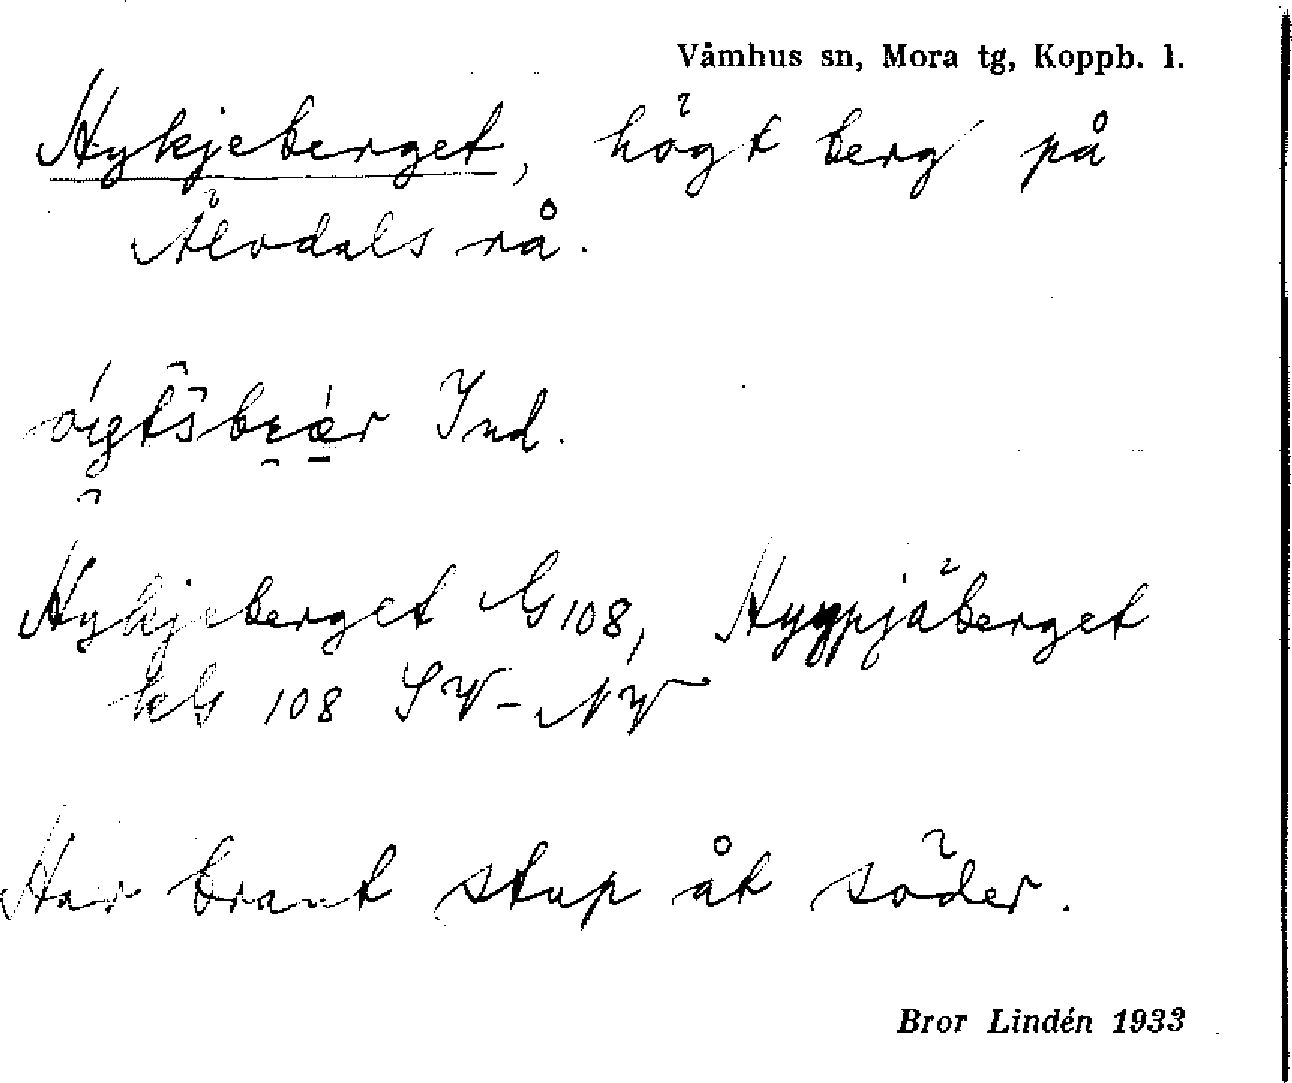 Våmhus sn, Mora tg, Koppb. l.
Hykjeberget, högt berg på
Älvdals rå.
Ind.
Hykjeberget G 108, Hyppjäberget
kG 108 SV-NV
Har brant stup åt söder.
Bror Lindén 1933